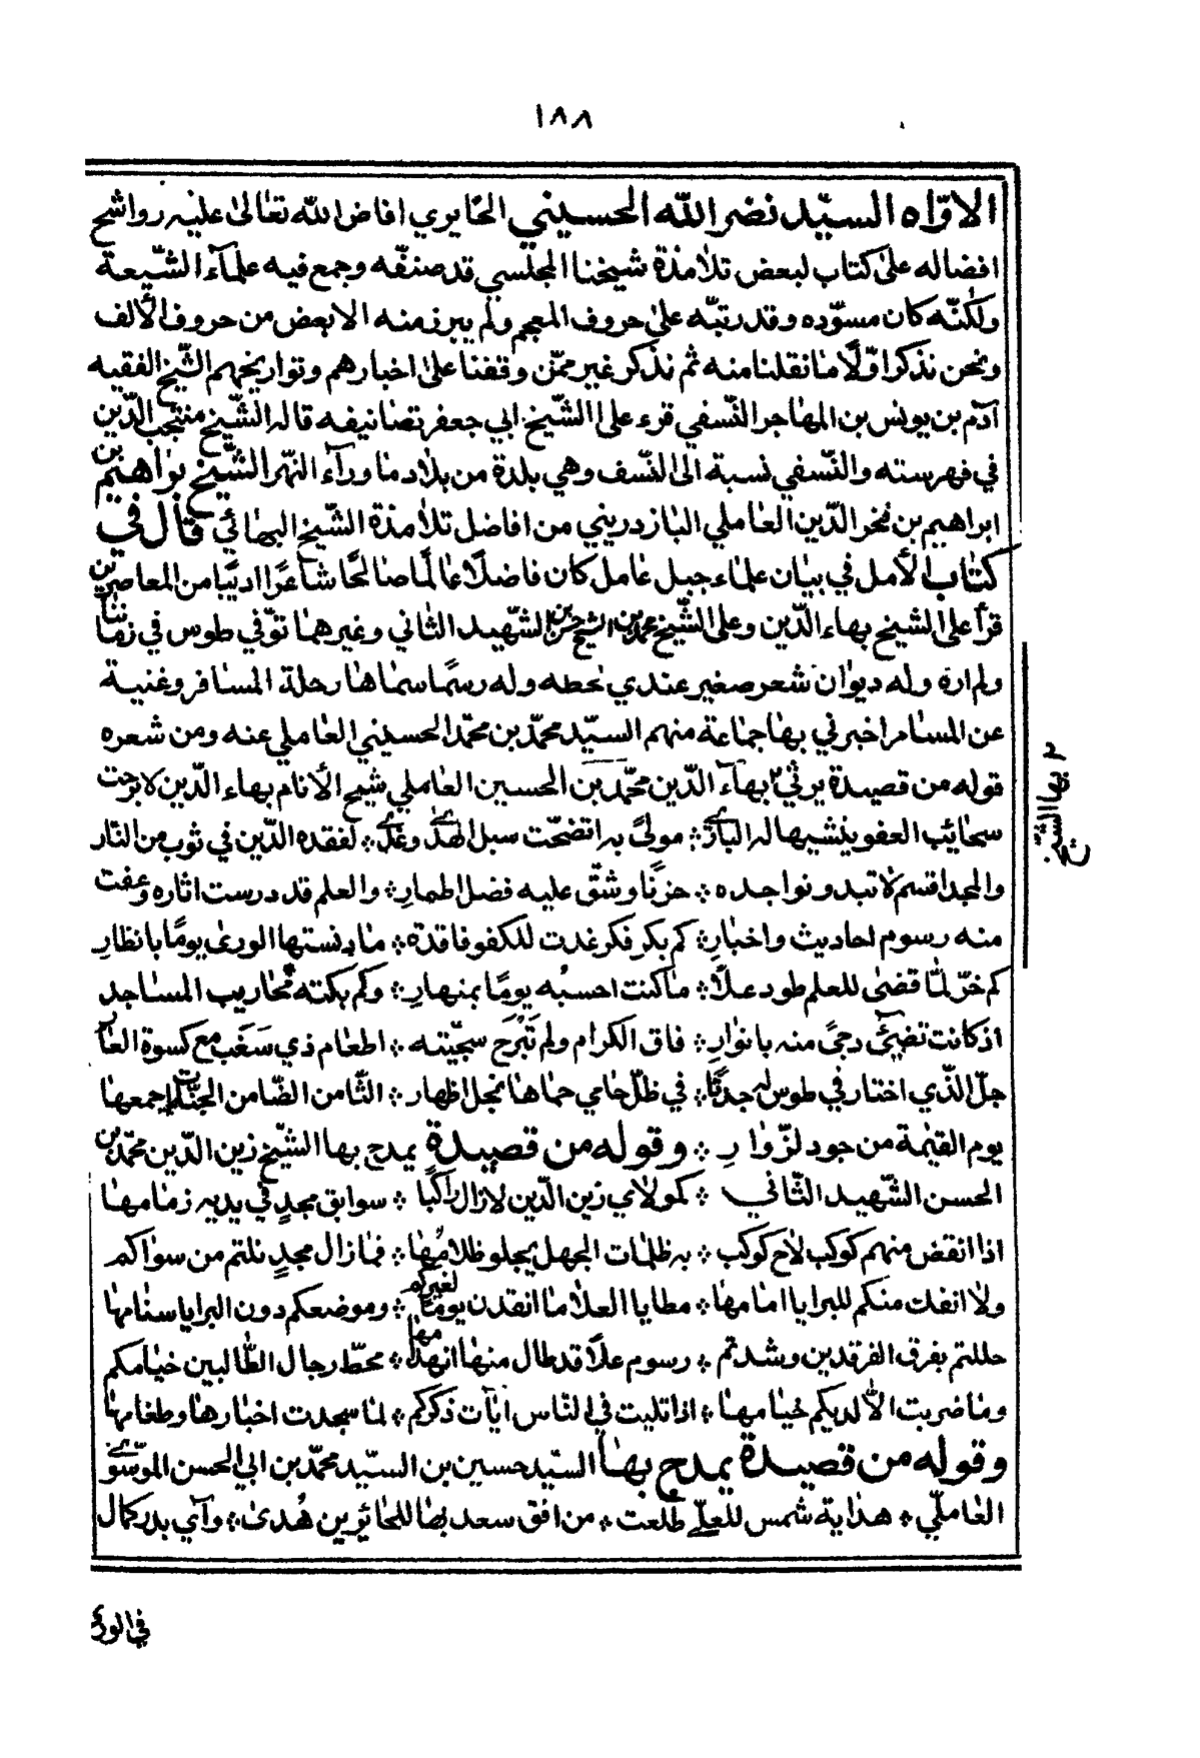 ١٨٨
الاوّاه السيّد نصر الله الحسيني الحايري افاض الله تعالى عليه رواشح
افضاله على كتاب لبعض تلامذة شيخنا المجلسي قد صنفّه وجمع فيه علماء الشّيعة
ولكنّه كان مسوّده وقد رتبّه على حروف المعجم ولم يبرز منه الا بعض من حروف الألف
ونحن نذكر اوّلاً ما نقلنا منه ثم نذكر غير ممّن وقفنا على اخبارهم وتواريخهم الشّيخ الفقيه
آدم بن يونس بن المهاجر النّسفي قرء على الشّيخ ابي جعفر تصانيفه قاله الشّيخ منتجب الدّين
في فهرسته والنّسفي نسبة الى النّسف وهي بلدة من بلاد ما ورآء النّهر الشّيخ براهيم بن
ابراهيم بن فخر الدّين العاملي البازدريني من افاضل تلامذة الشّيخ البهائي قال في
كتاب الأمل في بيان علماء جبل عامل كان فاضلاً عالماً صالحاً شاعرًا اديبًا من المعاصرين
قرأ على الشيخ بهاء الدّين وعلى الشّيخ محمد بن الشيخ حسن بن الشّهيد الثاني وغيرهما توّفي طوس في زماننا
ولم اره وله ديوان شعر صغير عندي بخطه وله رسمًا سماها رحلة المسافر وغنية
عن المسامر اخبرني بها جماعة منهم السيّد محمّد بن محمّد الحسيني العاملي عنه ومن شعره
قوله من قصيدة يرثي ٢ بهآء الدّين محمّد بن الحسين العاملي شيخ الأنام بهاء الدّين لا برحت
سحائب العفو ينشيها له الباري ؞ مولىً به اتضحّت سبل الهدى وغدى ؞ لفقده الدّين في ثوب من النّار
والمجد اقسم لا تبدو نواجده ؞ حزنًا وشقّ عليه فضل اطمارِ ؞ والعلم قد درست اثاره وعفت
منه رسوم احاديث واخبارِ ؞ كم بكر فكر غدت للكفو فاقدة ؞ ما دنستها الورى يومًا بانظارِ
كم خرّ لمّا قضى للعلم طود علًا ؞ ما كنت احسبُه يومًا بمنهارِ ؞ وكم بكته محاريب المساجد
اذ كانت تضيئ دجىً منه بانوارِ ؞ فاق الكرام ولم تَبْرَح سجيّته ؞ اطعام ذي سَغَب مع كسوة العاري
جلّ الّذي اختار في طوس له جدثًا ؞ في ظلّ حامي حماها نجل اظهار ؞ الثّامن الضّامن الجنات اجمعها
يوم القيمة من جود لزوّارِ ؞ وقوله من قصيدة يمدح بها الشّيخ زين الدّين محمّد بن
الحسن الشّهيد الثّاني ؞ كمولاي زين الدّين لا زال راكبًا ؞ سوابق مجدٍ في يديه زمامها
اذا انقض منهم كوكب لاح كوكب ؞ به ظلمات الجهل يجلو ظلامُها ؞ فما زال مجدٍ نلتم من سواكم
ولا انفك منكم للبرايا امامها ؞ مطايا العلا ما انقدن يومًا لغيركم ؞ وموضعكم دون البرايا سنامها
حللتم بفرق الفرقدين وشدتم ؞ رسوم علًا قد طال منها انهدامها ؞ محطّ رجال الطّالبين خيامكم
وما ضربت الاّ لديكم خيامها ؞ اذا تليت في النّاس آيات ذكركم ؞ لها سجدت اخبارها وطغامها
وقوله من قصيدة يمدح بها السيّد حسين بن السيّد محمّد بن ابي الحسن الموّسوي
العاملّي ؞ هداية شمس للعلي طلعت ؞ من افق سعد بها للحائرين هُدىً ؞ وآي بدر كمال
٢ بها الشيخ
في الورى